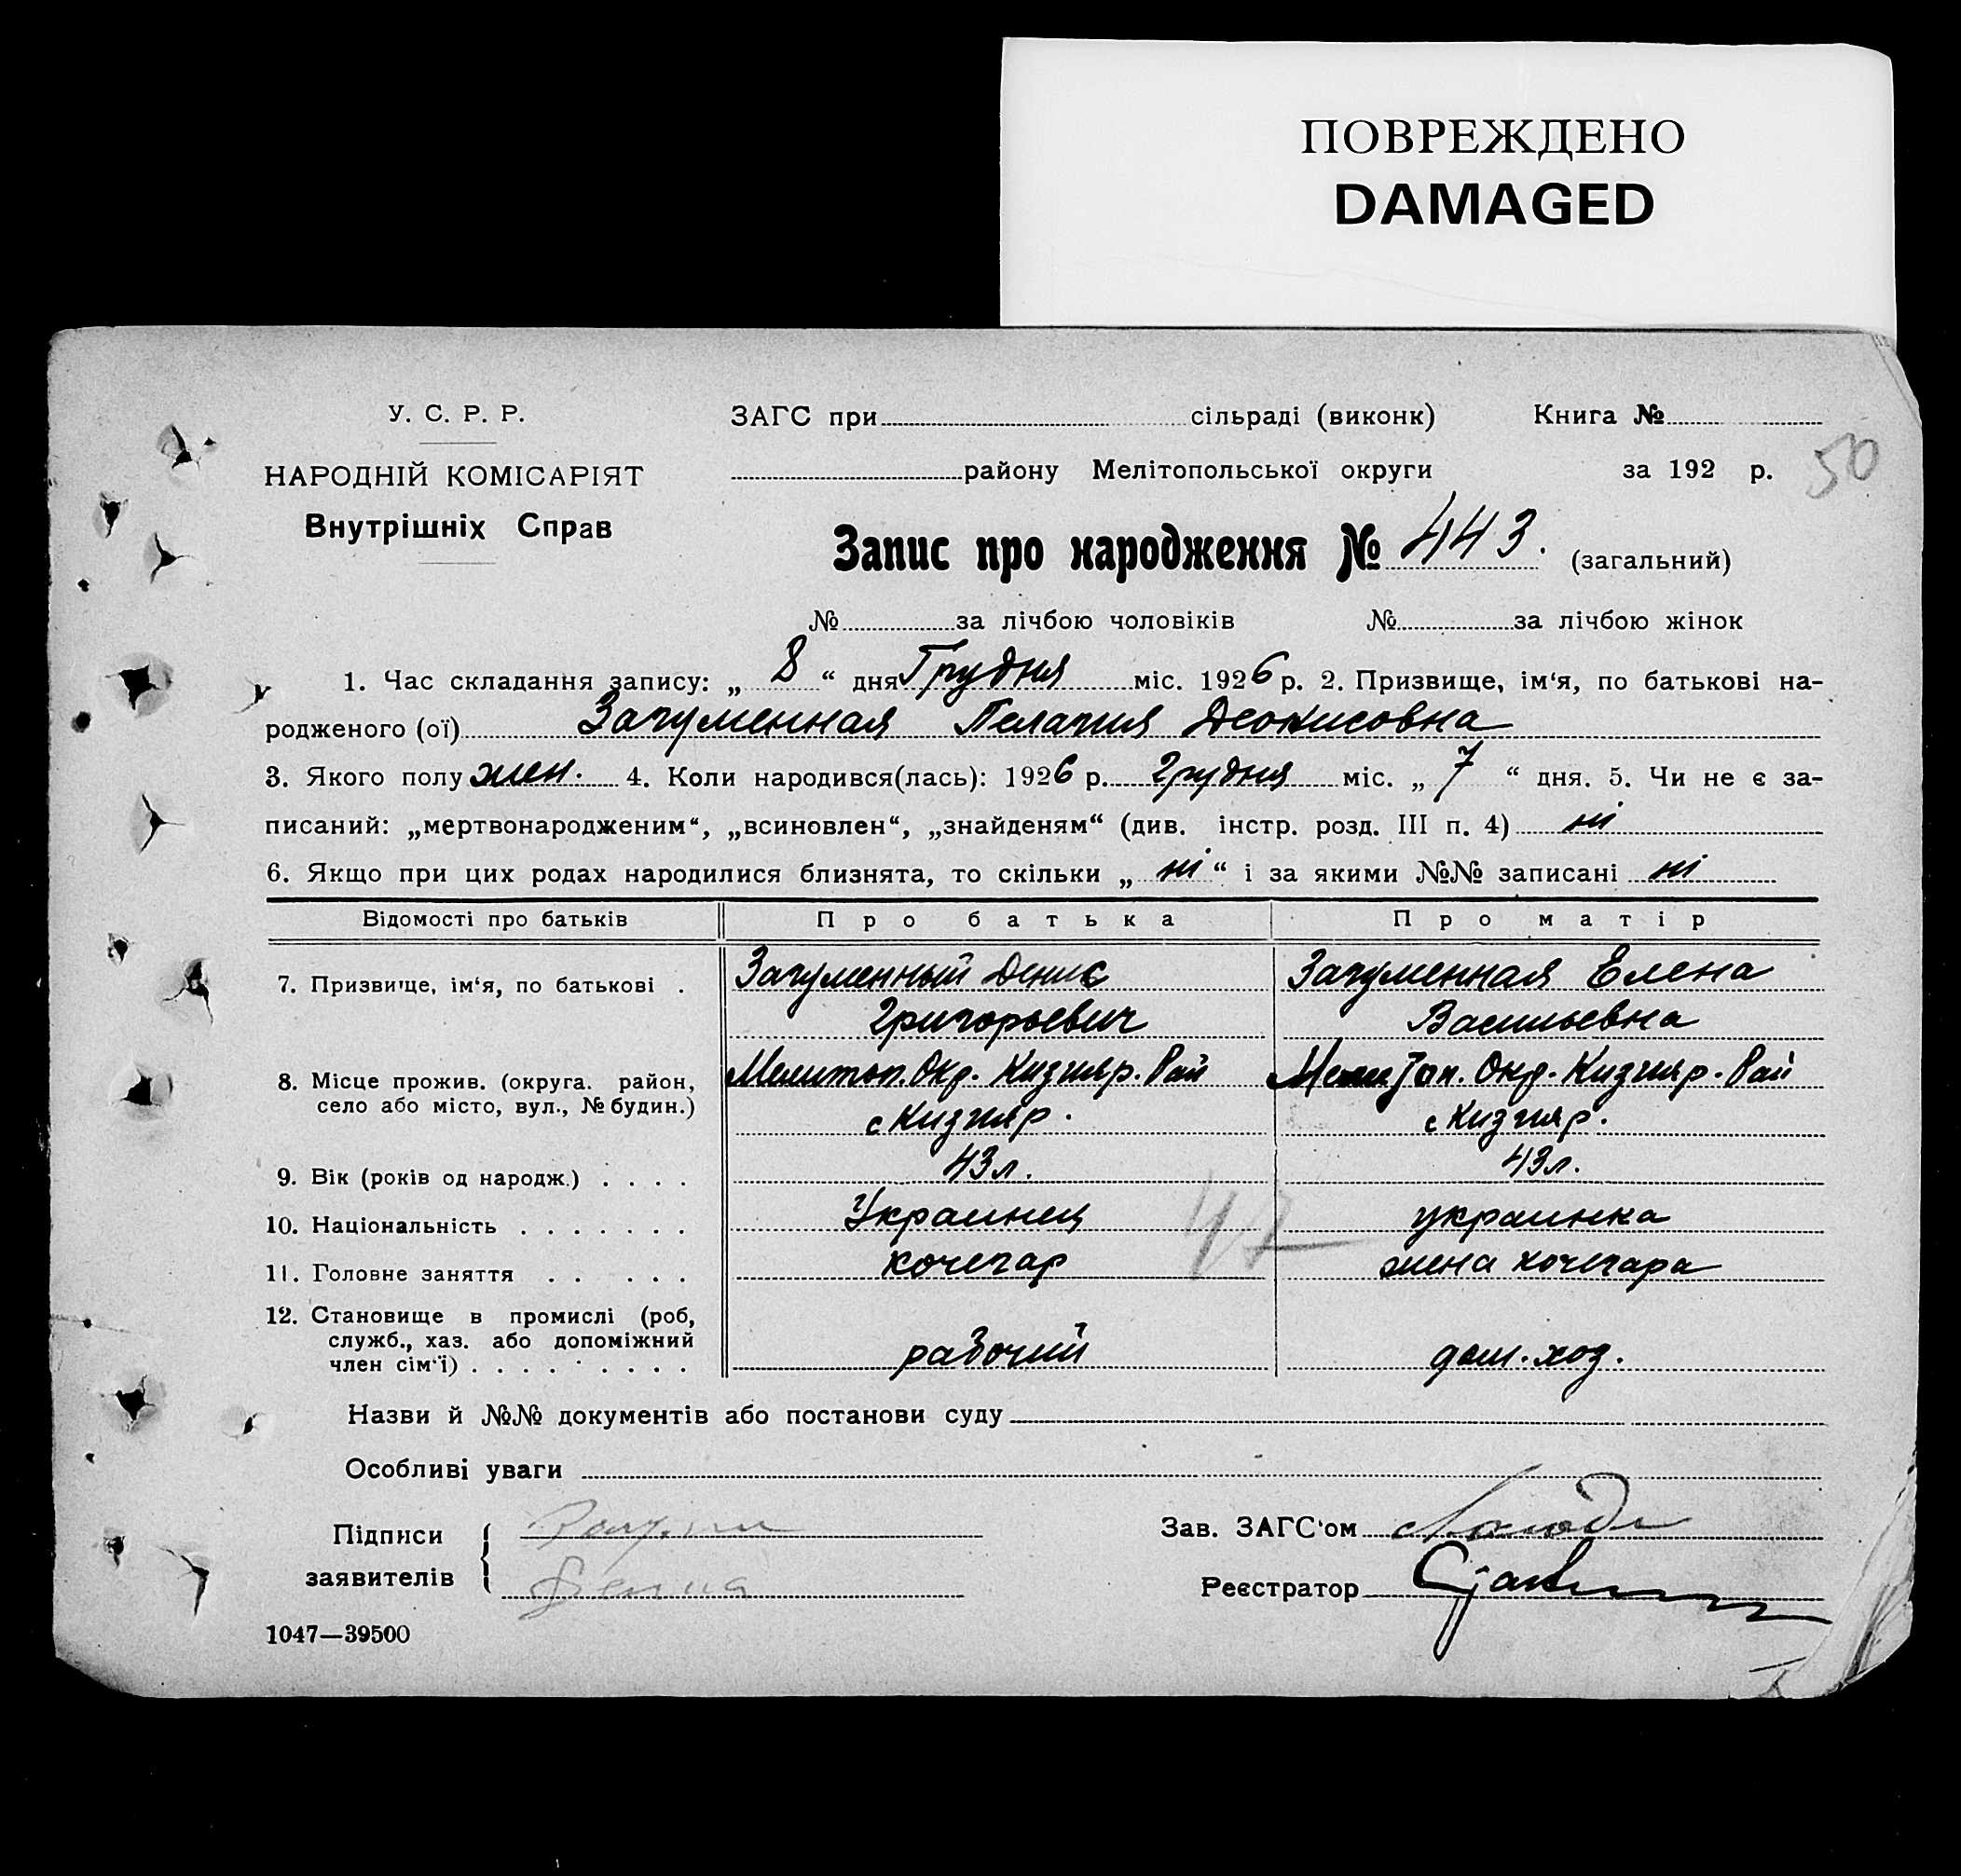 ПОВРЕЖДЕНО
DAMAGED
У. С. Р. Р.
НАРОДНІЙ КОМІСАРІЯТ
Внутрішніх Справ
ЗАГС при сільраді (виконк) Книга №
району Мелітопольської округи за 192 р.
50
Запис про народження № 443. (загальний)
№ за лічбою чоловіків № за лічбою жінок
1. Час складання запису: „ 8 “ дня Грудня міс. 1926 р. 2. Призвище, ім‘я, по батькові на-
родженого (ої) Загуменная Пелагия Денисовна
3. Якого полу жен. 4. Коли народився(лась): 1926 р. грудня міс. „ 7 “ дня. 5. Чи не є за-
писаний: „мертвонародженим“, „всиновлен“, „знайденям“ (див. інстр. розд. III п. 4) ні
6. Якщо при цих родах народилися близнята, то скільки „ ні “ і за якими №№ записані ні
Відомості про батьків Про батька Про матір
7. Призвище, ім‘я, по батькові . Загуменный Денис Загуменная Елена
Григорьевич Васильевна
8. Місце прожив. (округа. район, Мелитоп. Окр. Кизияр. Рай Мелитоп. Окр. Кизияр. Рай
село або місто, вул., № будин.) с Кизияр. с Кизияр.
9. Вік (років од народж.) . . . . 43 л. 43 л.
10. Національність . . . . . . . Украинец украинка
47
11. Головне заняття . . . . . кочегар жена кочегара
12. Становище в промислі (роб,
служб., хаз. або допоміжний
член сім‘ї) . . . . . . . . . рабочий дом. хоз.
Назви й №№ документів або постанови суду
Особливі уваги
Підписи Зав. ЗАГС‘ом
заявителів Реєстратор
1047—39500